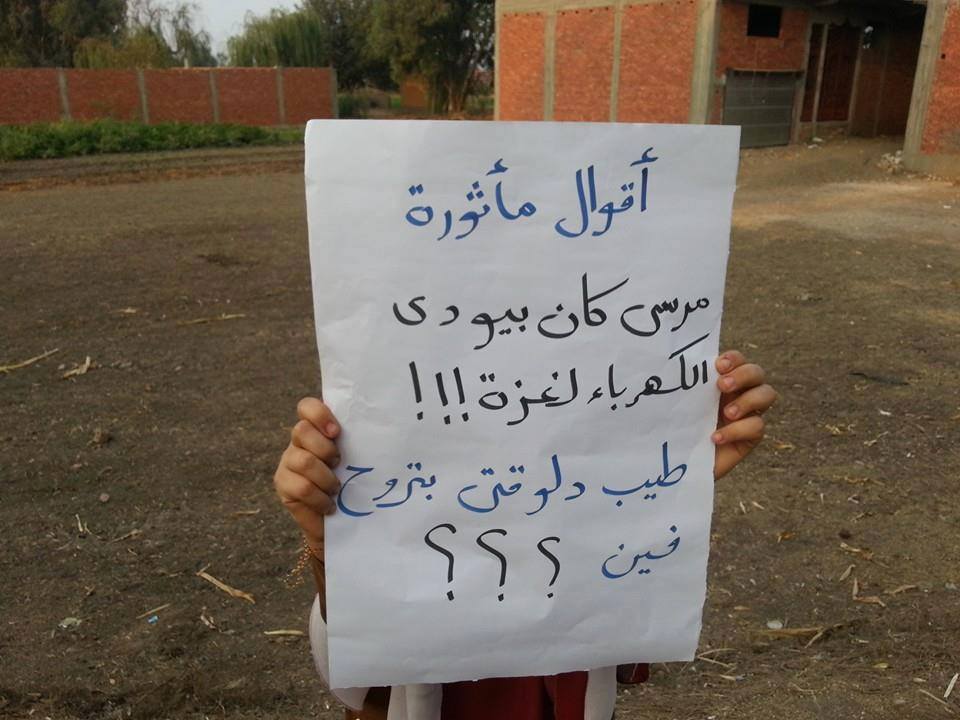 أقوال مأثورة
مرسى كان بيودى
الكهرباء لغزة !!!
طيب دلوقتى بتروح
فين ؟ ؟ ؟